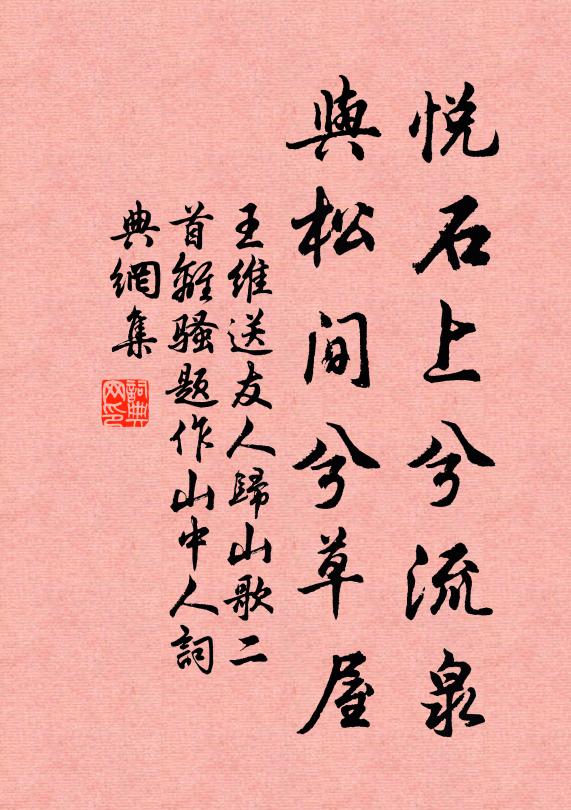 悅石上兮流泉
與松間兮草屋
王維送友人歸山歌二
首離騷題作山中人詞
典網集
詞典網印